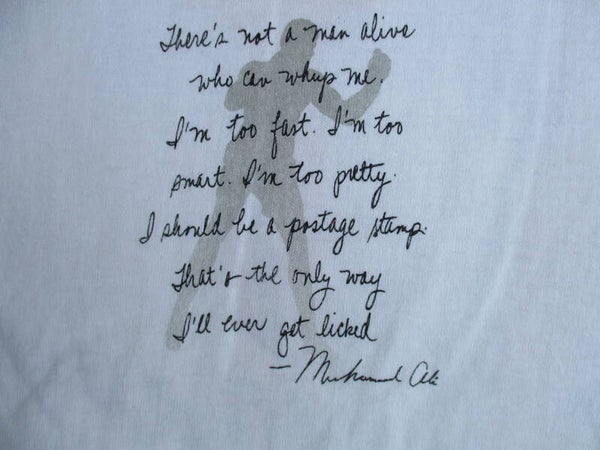 There's not a man alive
who can whup me.
I'm too fast. I'm too
smart. I'm too pretty.
I should be a postage stamp.
That's the only way
I'll ever get licked
- Muhammad Ali